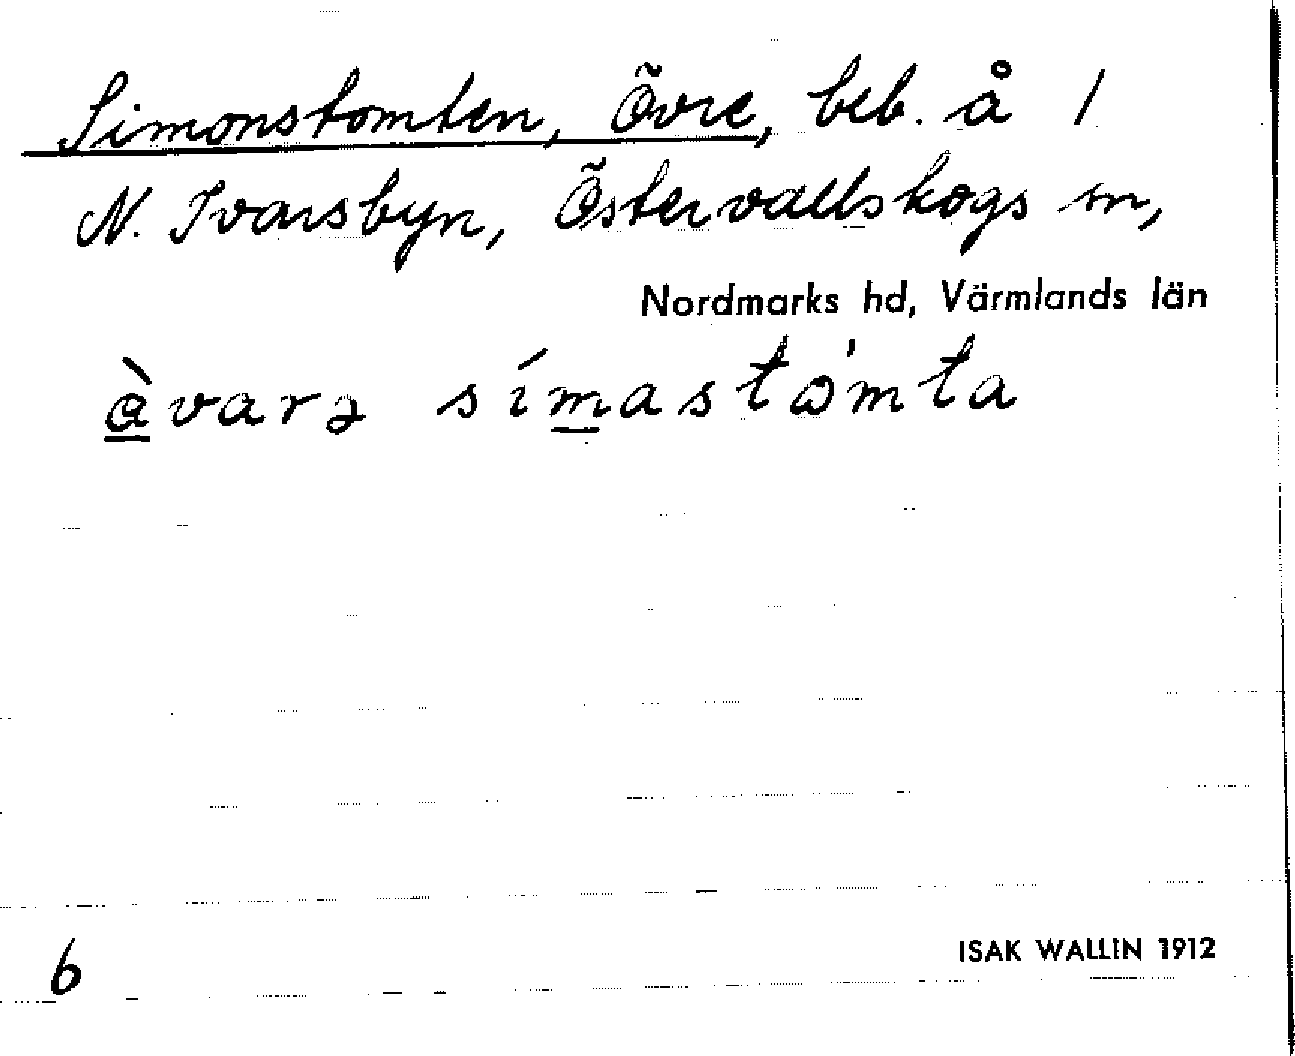 Simonstomten, Övre, beb. å 1
N. Ivarsbyn, Östervallskogs sn,
Nordmarks hd, Värmlands län
àvarə símastɷ̀mta
6
ISAK WALLIN 1912